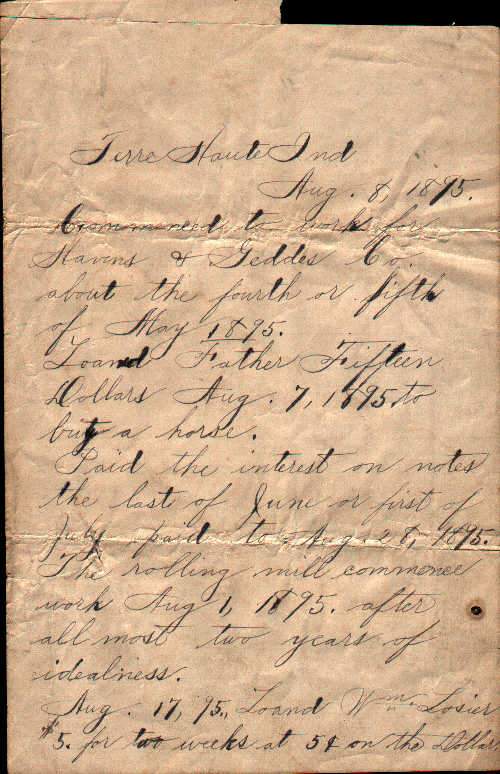 Terre Haute Ind
Aug. 8, 1895.
Commenced to work for
Havens & Geddes Co.
about the fourth or fifth
of May 1895.
Loand Father Fifteen
Dollars Aug. 7, 1895 to
buy a horse.
Paid the interest on notes
the last of June or first of
July paid to Aug 28, 1895.
The rolling mill commence
work Aug 1, 1895. after
all most two years of
idealness.
Aug. 17, 95., Loand Wm. Losier
$5. for two weeks at 5¢ on the Dollar